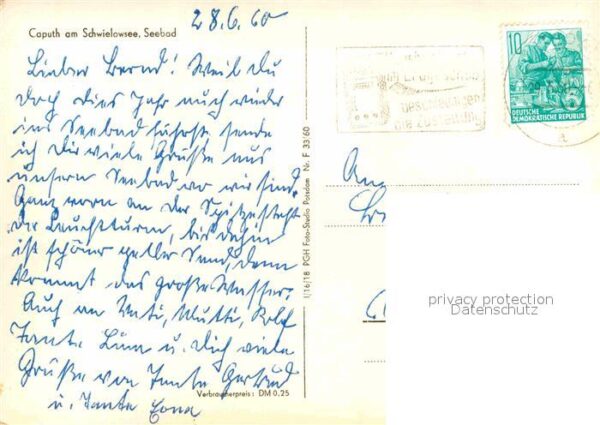 28.6.60
Caputh am Schwielowsee, Seebad
Lieber Bernd! Weil du
doch dies Jahr auch wieder
ins Seebad fährst sende
ich Dir viele Grüße aus
unserm Seebad wo wir sind.
Ganz vorn an der Spitze steht
der Leuchtturm, bis dahin
ist schöner gelber Sand, dann
kommt das große Wasser.
Auch an Vati, Mutti, Rolf
Tante u. Dich viele
Grüße von Tante Gertrud
u. Tante
Verbraucherpreis: DM 0.25
1/16/18 PGH Foto-Studio Potsdam Nr. F 33/60
10
DEUTSCHE
DEMOKRATISCHE REPUBLIK
An
privacy protection
Datenschutz